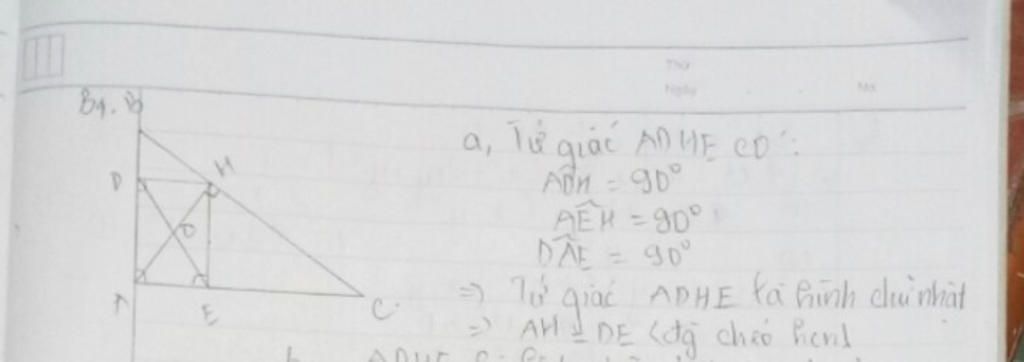 Thứ
Ngày No
B4. B
H
D
O
A
E
C
a, Tứ giác ADHE có:
ADH = 90°
AEH = 90°
DAE = 90°
=> Tứ giác ADHE là hình chữ nhật
=> AH = DE (đg chéo hcn)
ADHE